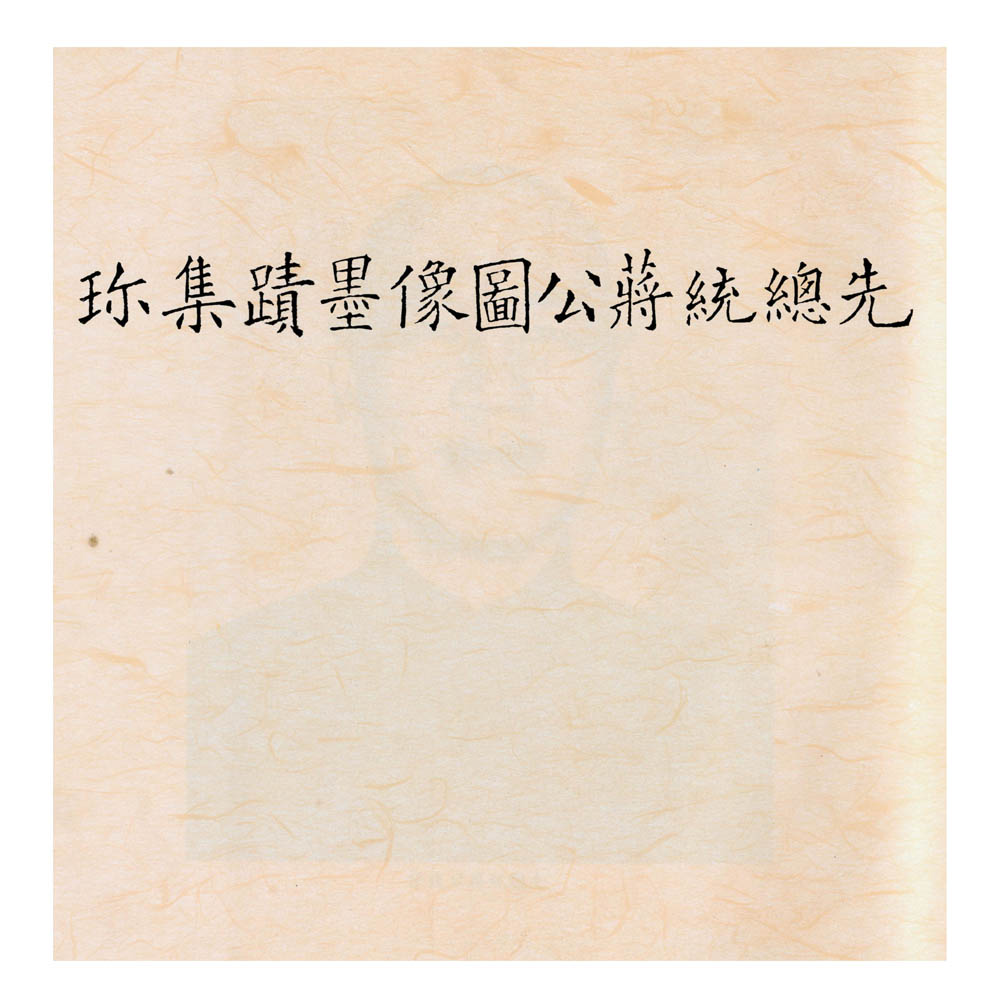 先總統蔣公圖像墨蹟集珎